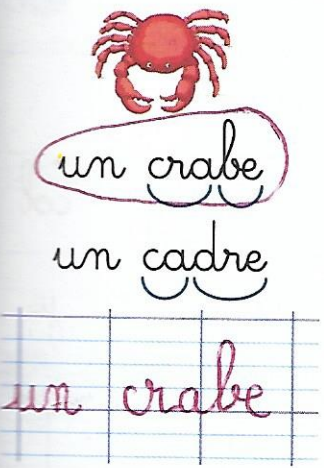 un crabe
un cadre
un crabe